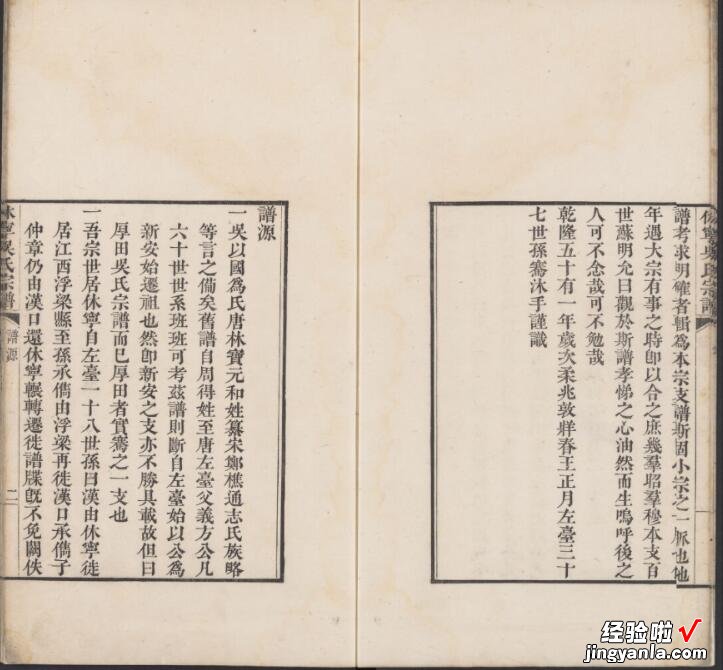 譜考求明確者輯爲本宗支譜斯固小宗之一脈也他
年遇大宗有事之時卽以合之庶幾羣昭羣穆本支百
世蘇明允曰觀於斯譜孝悌之心油然而生嗚呼後之
人可不念哉可不勉哉
乾隆五十有一年歲次柔兆敦牂春王正月左臺三十
七世孫騫沐手謹識
譜源
一吳以國爲氏唐林寶元和姓纂宋鄭樵通志氏族略
等言之備矣舊譜自周得姓至唐左臺父義方公凡
六十世世系班班可考茲譜則斷自左臺始以公爲
新安始遷祖也然卽新安之支亦不勝具載故但曰
厚田吳氏宗譜而已厚田者實騫之一支也
一吾宗世居休寧自左臺一十八世孫曰漢由休寧徙
居江西浮梁縣至孫承儁由浮梁再徙漢口承儁子
仲章仍由漢口還休寧輾轉遷徙譜牒旣不免闕佚
休寧吳氏宗譜
譜源
二
休寧吳氏宗譜
经验啦√
jingyanla.com